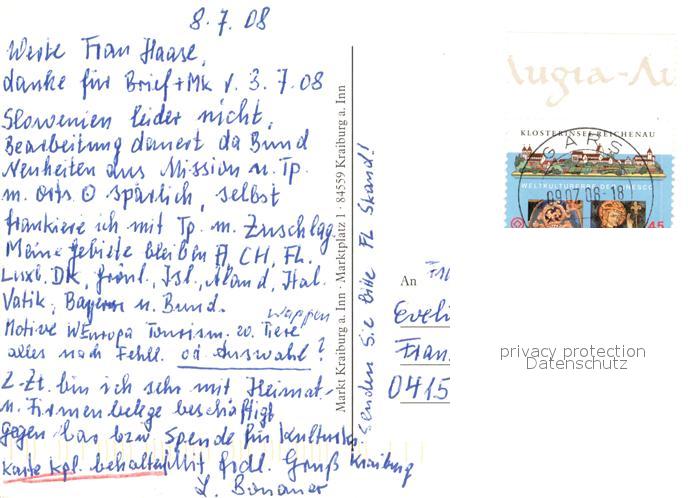 8.7.08
Werte Frau Haase,
danke für Brief + Mk v. 3.7.08
Slowenien leider nicht,
Bearbeitung dauert da Bund
Neuheiten aus Mission u. Tp.
m. Orts ʘ spärlich, selbst
frankiere ich mit Tp. m. Zuschlag.
Meine Gebiete bleiben A, CH, FL.
Luxb. DK, Grönl., Isl., Aland, Ital.
Vatik, Bayern u. Bund.
Wappen
Motive WEuropa Tourism. zo. Tiere
alles nach Fehll. od. Auswahl?
Z-Zt. bin ich sehr mit Heimat-
u. Firmenbelege beschäftigt
gegen bar bzw. Spende für Kulturkr.
Karte kpl. behalten Mit frdl. Gruß Kraiburg
Markt Kraiburg a. Inn · Marktplatz 1 · 84559 Kraiburg a. Inn
senden Sie bitte FL Skand!
Augia-Au
KLOSTERINSEL REICHENAU
GARS
WELTKULTURERBE DER UNESCO
09.07.08-18
45
An
Eveli
Fran
0415
privacy protection
Datenschutz